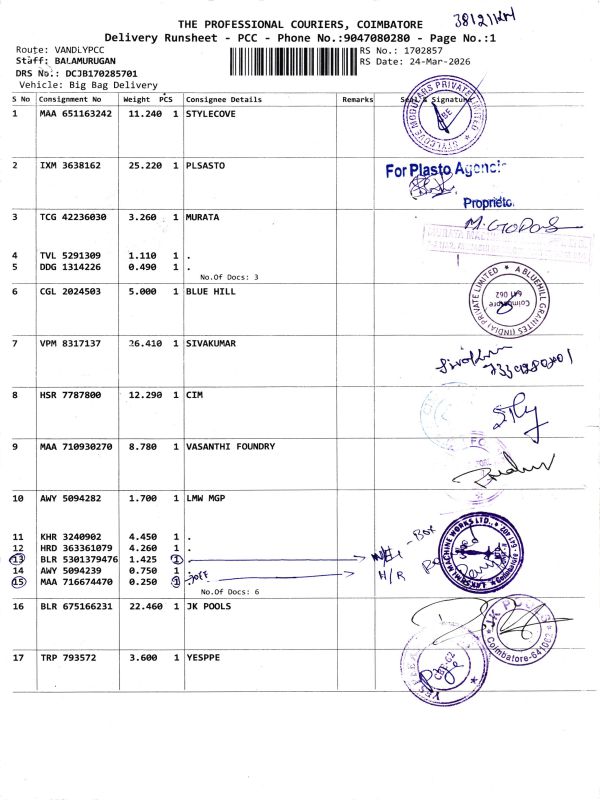 THE PROFESSIONAL COURIERS, COIMBATORE
Delivery Runsheet - PCC - Phone No.:9047080280 - Page No.:1
Route: VANDLYPCC
RS No.: 1702857
Staff: BALAMURUGAN
RS Date: 24-Mar-2026
DRS No.: DCJB170285701
Vehicle: Big Bag Delivery
S No Consignment No Weight PCS Consignee Details Remarks Seal & Signature
1 MAA 651163242 11.240 1 STYLECOVE
STYLECOVE MODULARS PRIVATE LIMITED
CBE
2 IXM 3638162 25.220 1 PLSASTO
For Plasto Agenci
Proprieto
3 TCG 42236030 3.260 1 MURATA
4 TVL 5291309 1.110 1 .
5 DDG 1314226 0.490 1 .
No.Of Docs: 3
6 CGL 2024503 5.000 1 BLUE HILL
A BLUEHILL GRANITES (INDIA) PRIVATE LIMITED
Coimbatore
641 062
7 VPM 8317137 26.410 1 SIVAKUMAR
8 HSR 7787800 12.290 1 CIM
9 MAA 710930270 8.780 1 VASANTHI FOUNDRY
10 AWY 5094282 1.700 1 LMW MGP
11 KHR 3240902 4.450 1 .
12 HRD 363361079 4.260 1 .
13 BLR 5301379476 1.425 1 .
14 AWY 5094239 0.750 1 .
15 MAA 716674470 0.250 1 .
H/R
- Box
LAKSHMI MACHINE WORKS LTD.,
No.Of Docs: 6
16 BLR 675166231 22.460 1 JK POOLS
JK POOLS
Coimbatore-641062
17 TRP 793572 3.600 1 YESPPE
CBE-62